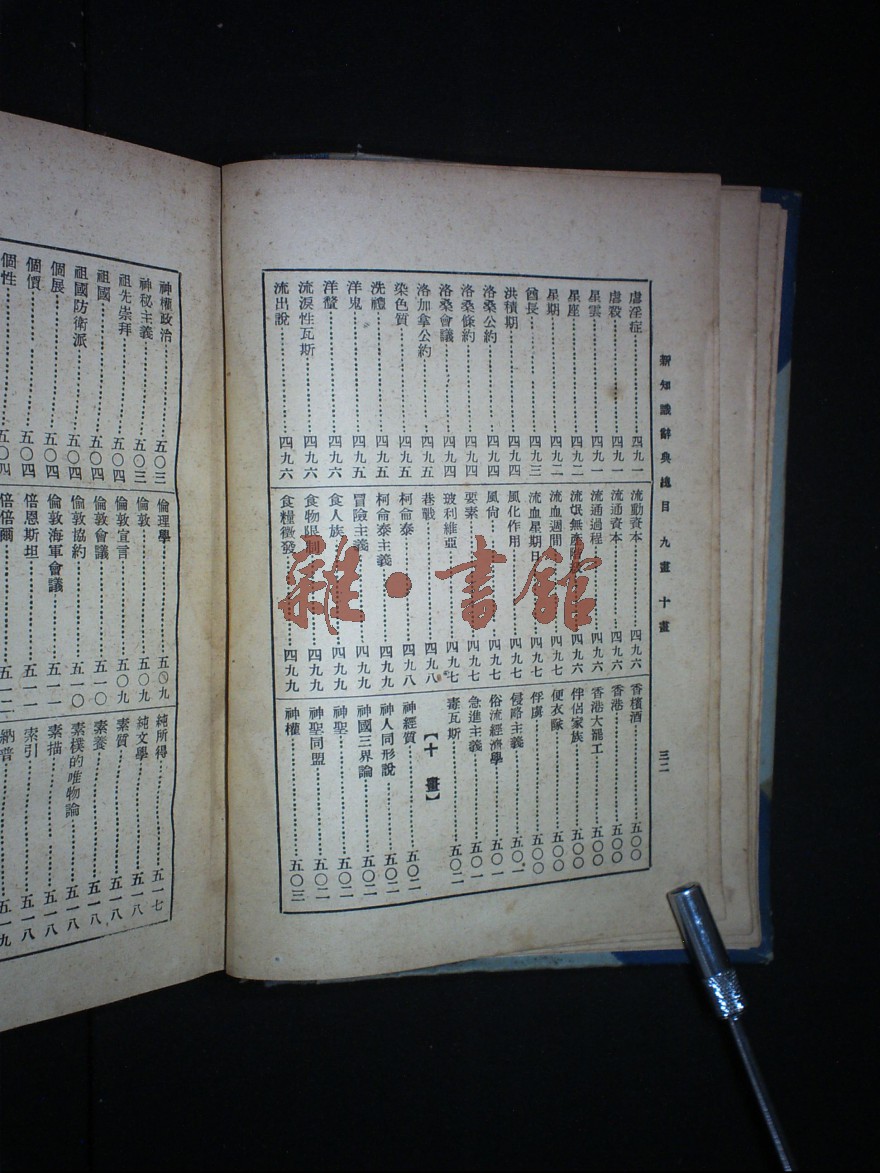 新知識辭典總目 九畫 十畫
三二
虐淫症 四九一
虐殺 四九一
星雲 四九一
星座 四九二
星期 四九二
酋長 四九三
洪積期 四九四
洛桑公約 四九四
洛桑條約 四九四
洛桑會議 四九四
洛加拿公約 四九五
染色質 四九五
洗禮 四九五
洋鬼 四九五
洋盤 四九六
流淚性瓦斯 四九六
流出說 四九六
流動資本 四九六
流通資本 四九六
流通過程 四九六
流氓無產 四九六
流血週間 四九七
流血星期日 四九七
風化作用 四九七
風尙 四九七
要素 四九七
玻利維亞 四九七
巷戰 四九八
柯侖泰 四九八
柯侖泰主義 四九九
冒險主義 四九九
食人族 四九九
食物限制 四九九
食糧徵發 四九九
香檳酒 五〇〇
香港 五〇〇
香港大罷工 五〇〇
伴侶家族 五〇〇
便衣隊 五〇〇
俘虜 五〇〇
侵略主義 五〇一
俗流經濟學 五〇一
急進主義 五〇一
毒瓦斯 五〇二
【十畫】
神經質 五〇二
神人同形說 五〇二
神國三界論 五〇二
神聖 五〇二
神聖同盟 五〇二
神權 五〇三
神權政治 五〇三
神秘主義 五〇三
祖先崇拜 五〇四
祖國 五〇四
祖國防衛派 五〇四
個展 五〇四
個價 五〇四
個性 五〇四
倫理學 五〇九
倫敦 五〇九
倫敦宣言 五〇九
倫敦會議 五一〇
倫敦協約 五一〇
倫敦海軍會議 五一一
倍恩斯坦 五一一
倍倍爾 五一二
純所得 五一七
純文學 五一八
素質 五一八
素養 五一八
素樸的唯物論 五一八
素描 五一八
索引 五一八
納普 五一九
雜·書館